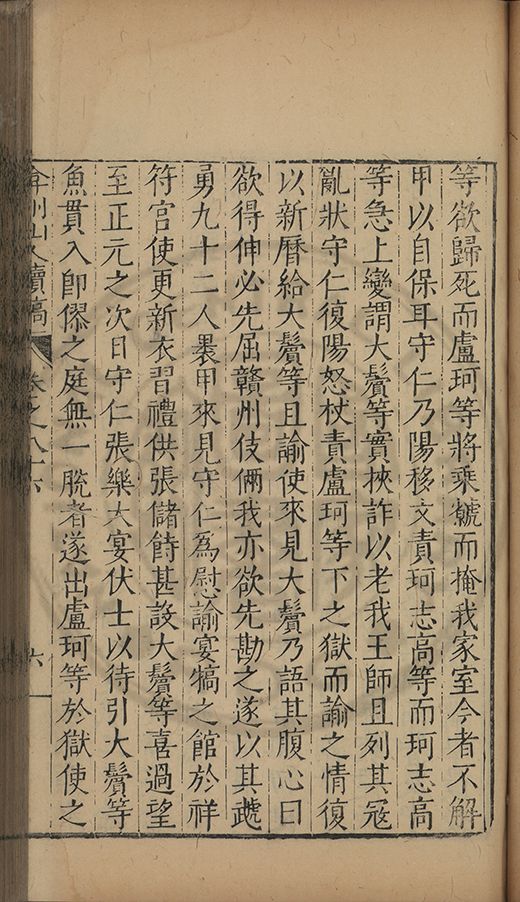 等欲歸死而盧珂等將乘虩而掩我家室今者不解
甲以自保耳守仁乃陽移文責珂志高等而珂志高
等急上變謂大鬢等實挾詐以老我王師且列其冦
亂狀守仁復陽怒杖責盧珂等下之獄而諭之情復
以新曆給大鬢等且諭使來見大鬢乃語其腹心曰
欲得伸必先屈贛州伎倆我亦欲先勘之遂以其虣
勇九十二人褁甲來見守仁為慰諭宴犒之館於祥
符宫使更新衣習禮供張儲餙甚設大鬢等喜過望
至正元之次日守仁張樂大宴伏士以待引大鬢等
魚貫入卽僇之庭無一脫者遂出盧珂等於獄使之
弇州山人續稿
卷之八十六
六